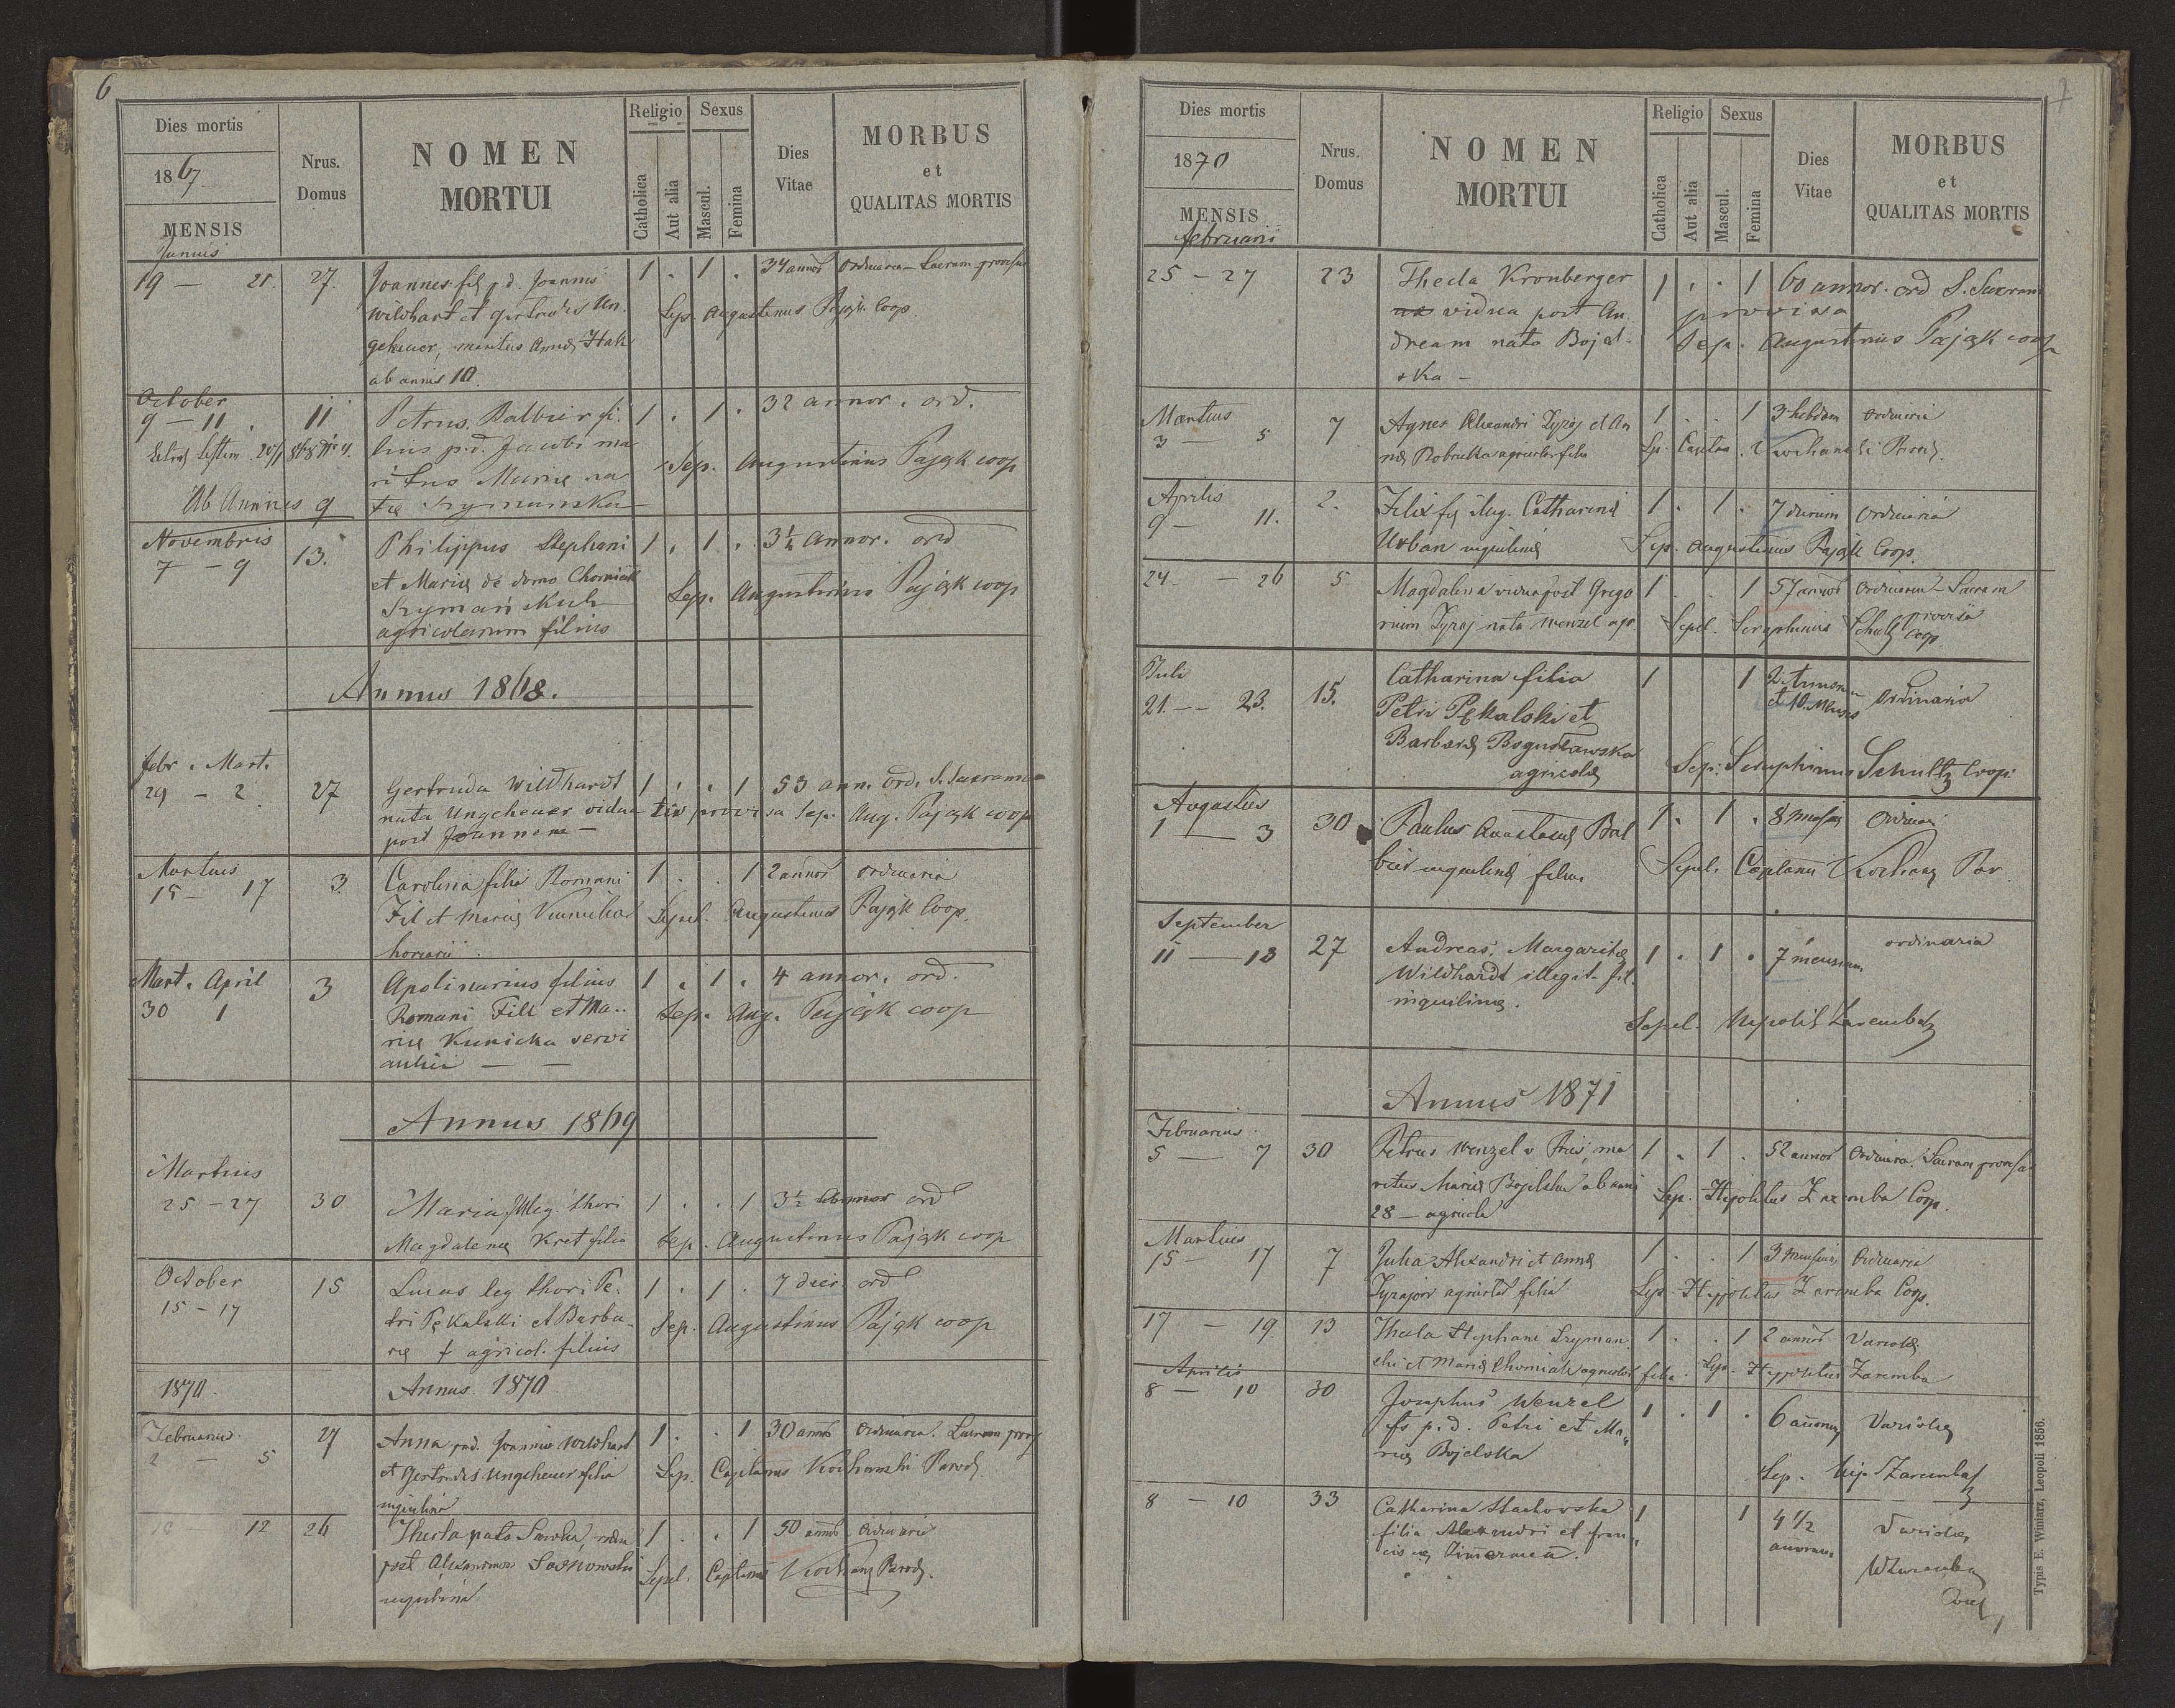 6
Dies mortis
1867
MENSIS
Junius
Nrus.
Domus
NOMEN
MORTUI
Religio
Catholica
Aut alia
Sexus
Mascul.
Femina
Dies
Vitae
MORBUS
et
QUALITAS MORTIS
19 — 21. 27. Joannes fil. p.d. Joannis 1 . 1 . 34 annor ordinaria - Sacram provisus
Wildhart et Gertrudis Un-
geheuer, maritus Annæ Hak
ab annis 10.
Sep. Augustinus Pająk Coop.
October
9 — 11. 11 Petrus Balbier fi- 1 . 1 . 32 annor. ord.
lius p.d. Jacobi ma-
ritus Mariæ na-
tæ Szymanska
Ab Annis 9
Sep. Augustinus Pająk coop
Novembris
7 — 9 13. Philippus Stephani 1 . 1 . 3½ annor. ord
et Mariæ de domo Chomiak
Szymańskich
agricolarum filius
Sep. Augustinus Pająk coop
Annus 1868.
febr. Mart.
29 — 2. 27 Gertruda Wildhardt 1 . . 1 53 ann. ord. S. Sacramen-
nata Ungeheuer vidua tis provisa Sep. Aug. Pająk coop
post Joannem —
Martius
15 — 17 3. Carolina filia Romani 1 . . 1 2 annor ordinaria
Fil et Mariæ
Sepel. Augustinus Pająk Coop.
Mart. April
30 1 3 Apolinarius filius 1 . 1 . 4 annor. ord.
Romani Fill et Ma-
riæ Kunicka servi
aulici —
Sep. Aug. Pająk coop
Annus 1869
Martius
25 — 27 30 Maria illeg. thori 1 . . 1 3½ annor ord
Magdalenæ Kret filia Sep. Augustinus Pająk coop
October
15 — 17 15 Lucas leg thori Pe- 1 . 1 . 7 dier. ord
tri Pękalski et Barba-
ræ agricol. filius
Sep. Augustinus Pająk coop
1870. Annus 1870
Februarius
2 — 5 27 Anna p.d. Joannis Wildhart 1 . . 1 30 annor ordinaria. Sacram prov
et Gertrudis Ungeheuer filia
inquilina
Sep. Capitanus Kochanski Paroch.
12 26 Thecla nata vidua 1 . . 1 50 annor. ordinaria
post Alexandrum Sosnowski
inquilina
Sepel. Capitanus Paroch.
7
Dies mortis
1870
MENSIS
februarii
Nrus.
Domus
NOMEN
MORTUI
Religio
Catholica
Aut alia
Sexus
Mascul.
Femina
Dies
Vitae
MORBUS
et
QUALITAS MORTIS
25 — 27 23 Thecla Kronberger 1 . . 1 60 annor. ord S. Sacram
vidua post An- provisa
dream nata Bojel-
ska —
Sep. Augustinus Pająk coop
Martius
3 — 5 7 Agnes Alexandri Zyzaj et An- 1 . . 1 3 hebdom ordinaria
næ agricolar filia Sep. Capitan. Kochanski Paroch.
Aprilis
9 — 11. 2. Felix fil. illeg. Catharinæ 1 . 1 . 7 dierum ordinaria
Urban inquilinæ Sep. Augustinus Pająk Coop.
24 — 26 5 Magdalena vidua post Grego- 1 . . 1 57 annor ordinaria - Sacram
rium Zyzaj nata Wenzel agr. provisa
Sepel. Seraphinus Schultz Coop
Juli
21. — 23. 15. Catharina filia 1 1 2 Annor
Petri Pękalski et et 10. Menses Ordinaria
Barbaræ Bogusławska
agricolæ
Sep: Seraphinus Schultz Coop.
Augustus
1 — 3 30 Paulus Anastasiæ Bal- 1 . 1 . 8 mensium Ordinaria
bier inquilinæ filius Sepel. Capitanus Par.
September
11 — 13 27 Andreas, Margaritæ 1 . 1 . 7 mensium ordinaria
Wildhardt illegit. fil.
inquilinæ.
Sepel. Zaremba
Annus 1871
Februarius
5 — 7 30 Petrus Wenzel ma- 1 . 1 . 52 annor ordinaria. Sacram provisus
ritus Mariæ Bojelska ab annis
28 — agricola
Sep. Hypolitus Zaremba Coop.
Martius
15 — 17 7 Julia Alexandri et Annæ 1 . . 1 3 mensium Ordinaria
agricolar filia Sep. Hyppolitus Zaremba Coop.
17 — 19 13 Thecla Stephani Szyman- 1 . . 1 2 annor Variolæ
ski et Mariæ Chomiak agricolar filia. Sep. Hyppolitus Zaremba
Aprilis
8 — 10 30 Josephus Wenzel 1 . 1 . 6 annorum Variolæ
fs p.d. Petri et Ma-
riæ Bojelska
Sep. Hip Zaremba
8 — 10 33 Catharina Stachowska 1 1 4 1/2 Variolæ
filia Alexandri et Fran- annorum
ciscæ Zimerman.
Zaremba
Coop
Typis E. Winiarz, Leopoli 1856.